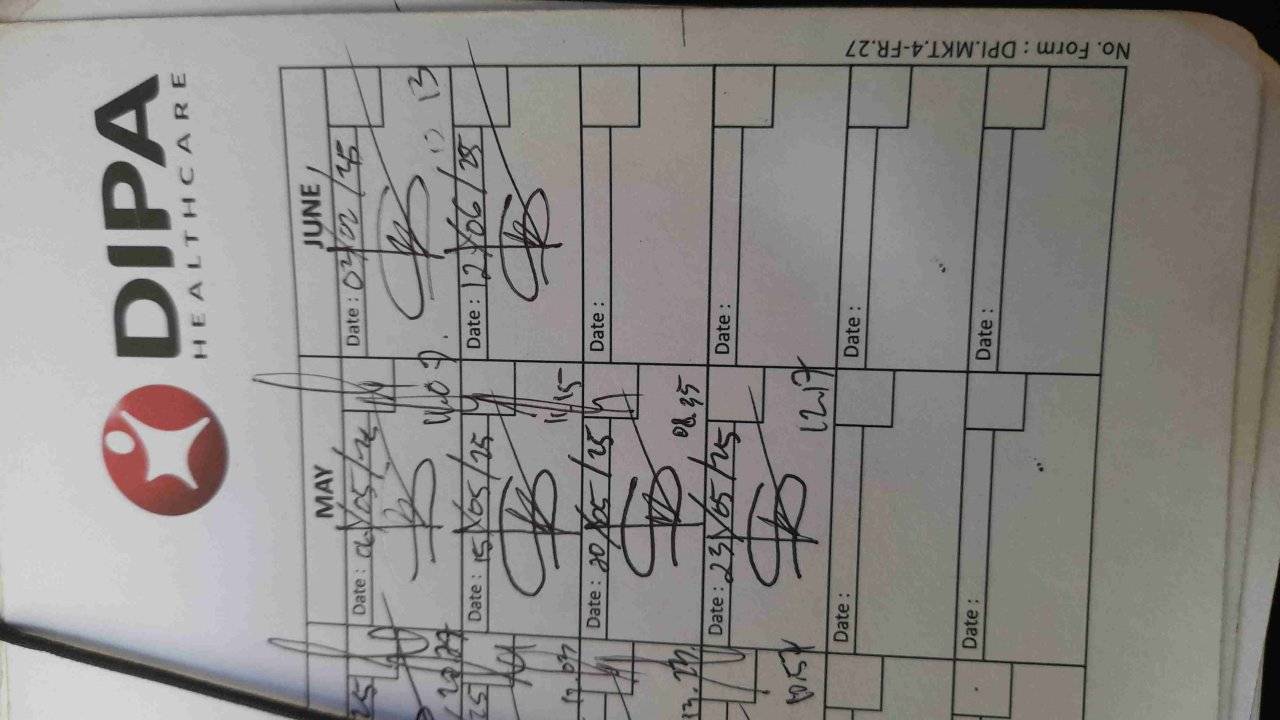 DIPA
HEALTHCARE
MAY
JUNE
Date : 06/05/25
Date :
11.07
Date : 15/05/25
Date : 12/06/25
11.15
Date : 20/05/25
Date :
08.35
Date : 23/05/25
Date :
12.17
Date :
Date :
Date :
Date :
25
25
10.54
No. Form : DPI.MKT.4-FR.27